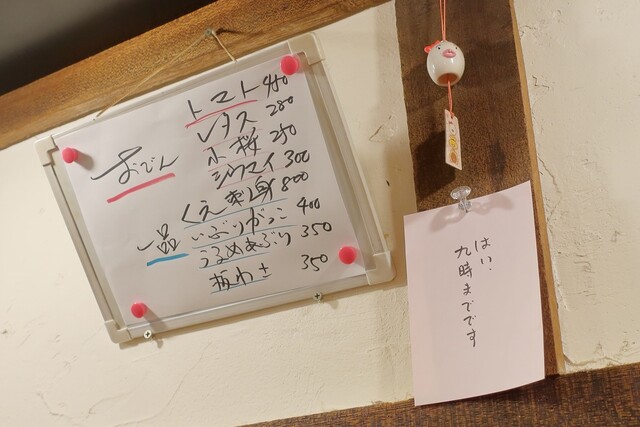 おでん
トマト 450
レタス 280
小桜 250
シウマイ 300
一品
くえ刺身 800
いぶりがっこ 400
うるめあぶり 350
板わさ 350
はい、
九時までです